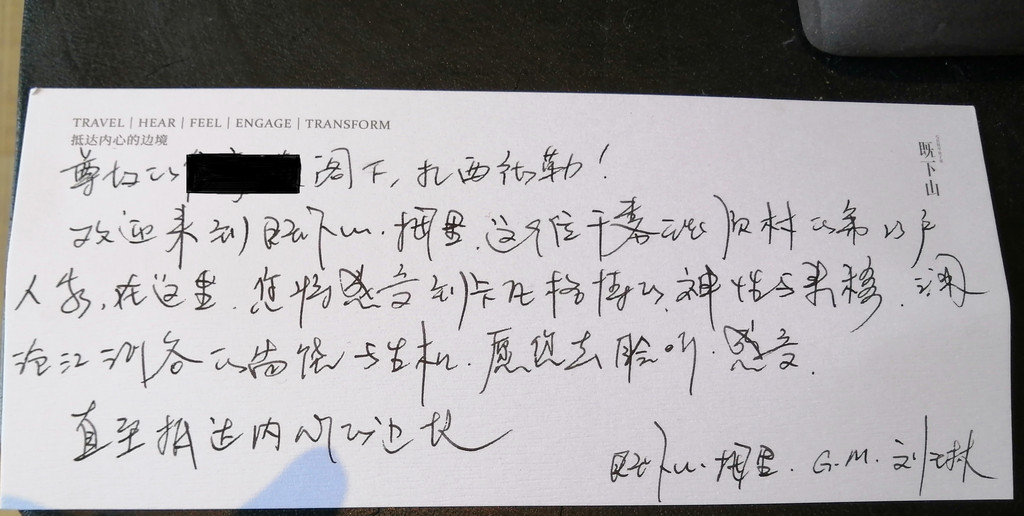 TRAVEL | HEAR | FEEL | ENGAGE | TRANSFORM
抵达内心的边境
既下山
尊敬的 阁下,扎西德勒!
欢迎来到既下山·梅里.这个位于雾浓顶村的第15户
人家,在这里.您将感受到卡瓦格博的神性与柔移.澜
沧江河谷的富饶与生机.愿您去聆听.感受.
直至抵达内心的边境
既下山·梅里. G.M. 刘